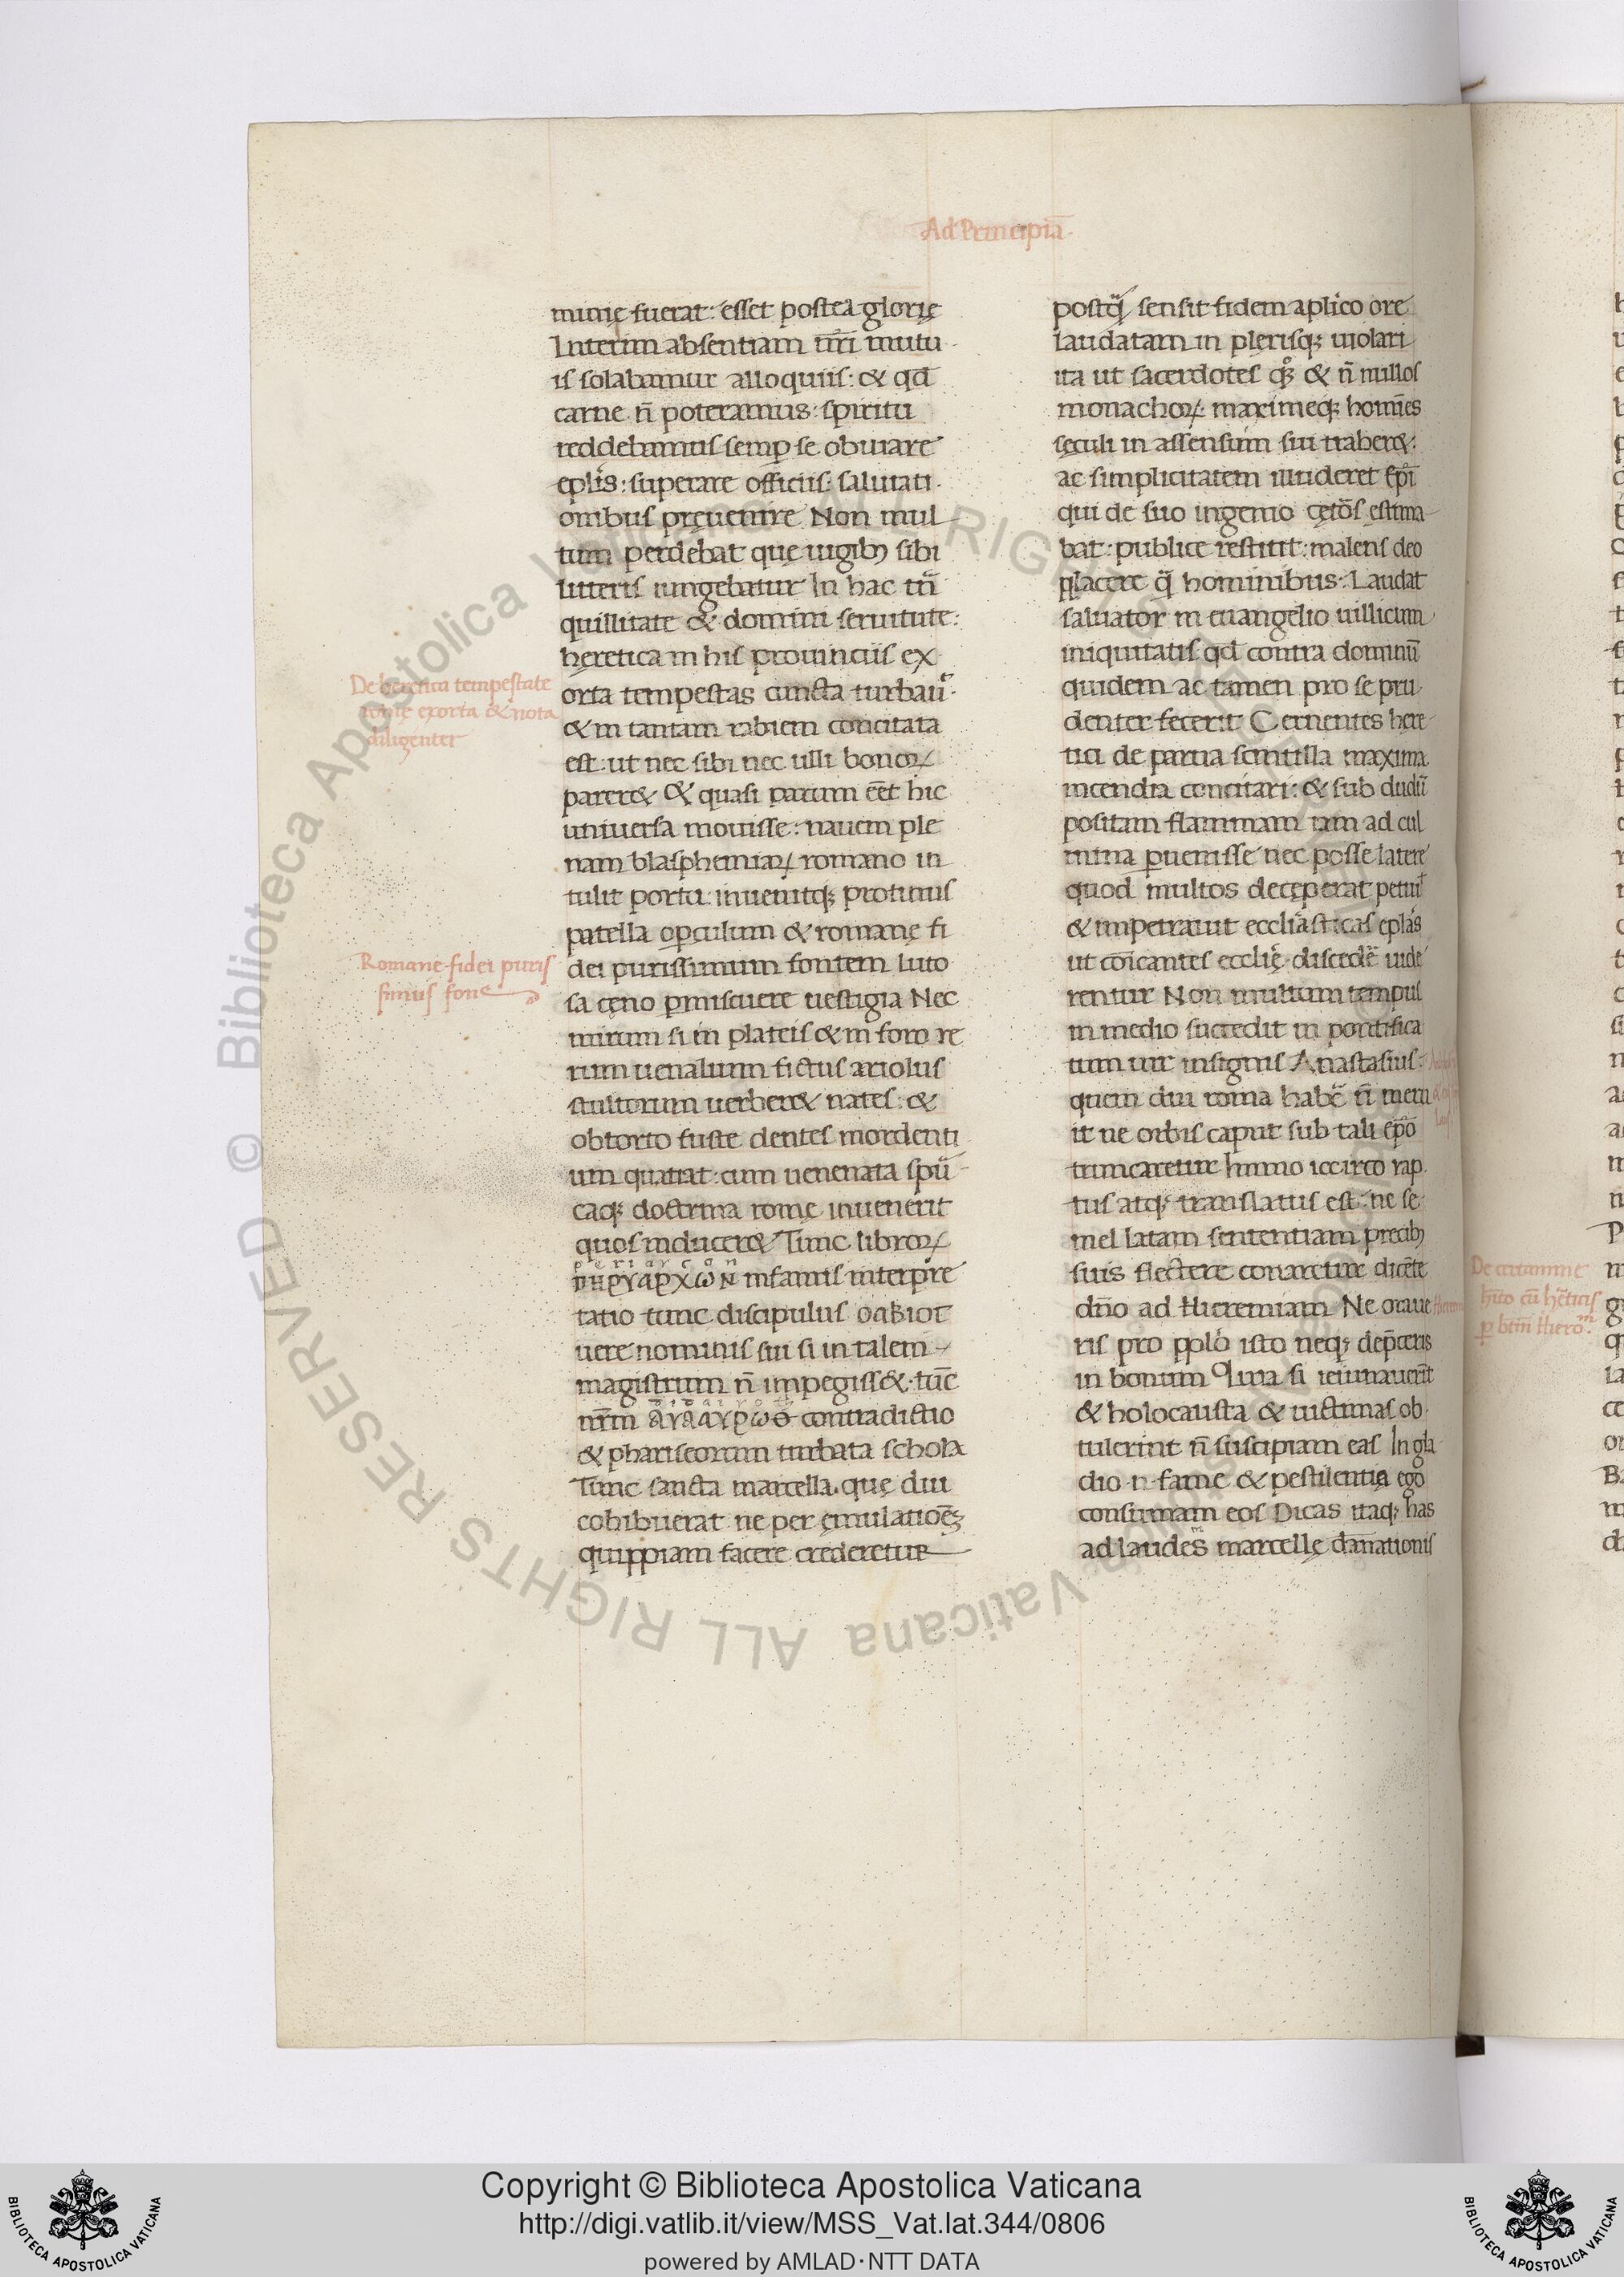 Ad Principiā.
minię fuerat: esset postea glorię
Interim absentiam nr̄i mutu
is solabamur alloquiis: & qd̄
carne n̄ poteramus: spiritu
reddebamus semp̱ se obuiare
eplis: superare officiis: salutati
onibus pręuenire Non mul
tum perdebat quę iugibꝫ sibi
litteris iungebatur In hac trā
quillitate & domini seruitute:
heretica in his prouinciis ex
orta tempestas cuncta turbau
& in tantam rabiem concitata
est: ut nec sibi nec ulli bonoꝝ
parcer& & quasi parum eēt hic
uniuersa mouisse: nauem ple
nam blasphemiaꝝ romano in
tulit portu: inuenitqꝫ protinus
patella oꝑculum & romanę fi
dei purissimum fontem luto
sa cęno ꝑmiscuere uestigia Nec
mirum si in plateis & in foro re
rum uenalium fictus ariolus
stultorum uerberet nates: &
obtorto fuste dentes mordenti
um quatiat: cum uenenata spur
caqꝫ doctrina romę inuenerit
quos inducer& Tunc libroꝝ
periarcon
ΠΗΡΥΑΡΧωΝ infamis interpre
tatio tunc discipulus
uere nominis sui si in talem
magistrum n̄ impegiss& tūc
nr̄m contradictio
& phariseorum turbata schola
Tunc sancta marcella. quę diu
cohibuerat ne per ęmulationē
quippiam facere crederetur
De heretica tempestate
exorta & nota
diligenter
Romane fidei puris
simus fons
postq̄ sensit fidem aplico ore
laudatam in plerisqꝫ uiolari
ita ut sacerdotes & n̄ nullos
monachoꝝ: maximeqꝫ homīes
sęculi in assensum sui traher&:
ac simplicitatem illuderet epī
qui de suo ingenio cęt̄os estima
bat: publice restitit: malens deo
placere q̄ hominibus: Laudat
saluator in euangelio uillicum
iniquitatis qd̄ contra dominū
quidem ac tamen pro se pru
denter fecerit Cernentes here
tici de parua scintilla maxima
incendia concitari: & sub dudū
positam flammam iam ad cul
mina ꝑuenisse nec posse latere
quod multos deceperat petiuit
& impetrauit eccliasticas eplas
ut cōicantes ecclię discedē uide
rentur Non multum tempus
in medio succedit in pontifica
tum uir insignis Anastasius.
quem diu roma habē n̄ meru
it ne orbis caput sub tali ep̄o
truncaretur himmo iccirco rap
tus atqꝫ translatus est: ne se
mel latam sententiam precibꝫ
suis flectere conaretur dicēte
dn̄o ad Hieremiam Ne oraue
ris pro pplo isto neqꝫ dep̄ceris
in bonum Quia si ieiunauerīt
& holocausta & uictimas ob
tulerint n̄ suscipiam eas In gla
dio fame & pestilentia ego
consumam eos Dicas itaqꝫ has
ad laudes marcellę dānationis
De certamine
hīto cū hēticis
ꝑ btm̄ Hierom̄.
Copyright © Biblioteca Apostolica Vaticana
http://digi.vatlib.it/view/MSS_Vat.lat.344/0806
powered by AMLAD·NTT DATA
BIBLIOTECA APOSTOLICA VATICANA
BIBLIOTECA APOSTOLICA VATICANA
© Biblioteca Apostolica Vaticana ALL RIGHTS RESERVED